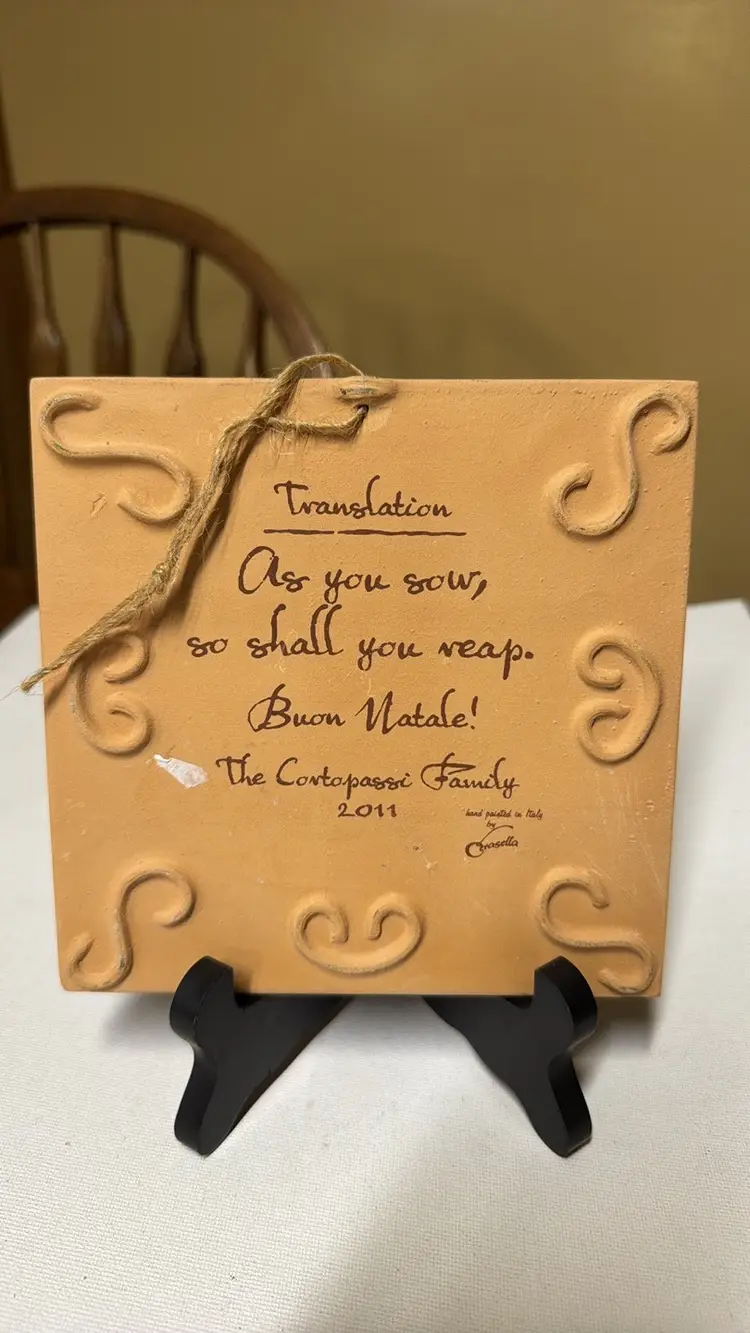 Translation
As you sow,
so shall you reap.
Buon Natale!
The Cortopassi Family
2011
hand painted in Italy
by